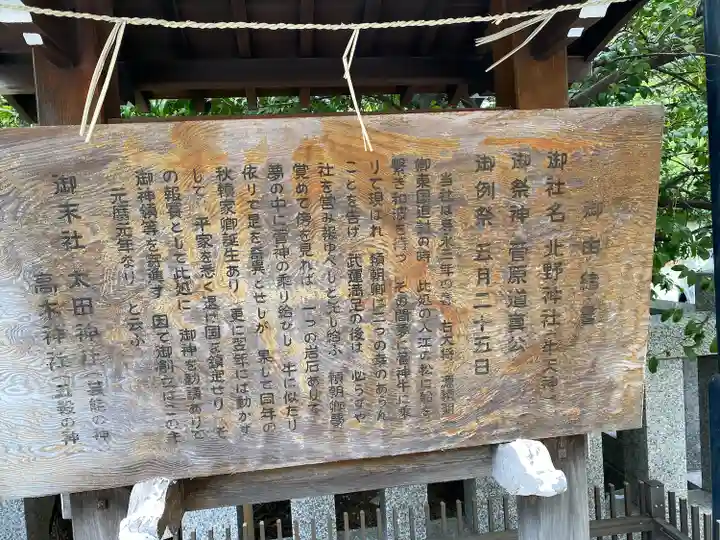 御由緒書
御社名 北野神社(牛天神)
御祭神 菅原道真公
御例祭 五月二十五日
当社は寿永三年の春 右大将 源頼朝
卿東国追討の時 此処の入江の松に船を
繋ぎ和波を待つ その間夢に菅神牛に乗
りて現はれ 頼朝卿に二つの幸のあらん
ことを告げ 武運満足の後は 必ずや
社を営み報ゆべしと託し給ふ 頼朝卿夢
覚めて傍を見れば 一つの岩石ありて
夢の中に菅神の乗り給ひし 牛に似たり
依りて是を奇異とせしが 果して同年の
秋頼家卿誕生あり 更に翌年には動かず
して 平家を悉く遠け国を鎮定せり そ
の報賽として此処に 御神を勧請ありて
御神領等を寄進す 因て御創立はこのキ
元暦元年なり と云ふ
御末社 太田神社(芸能の神)
高木神社(五穀の神)